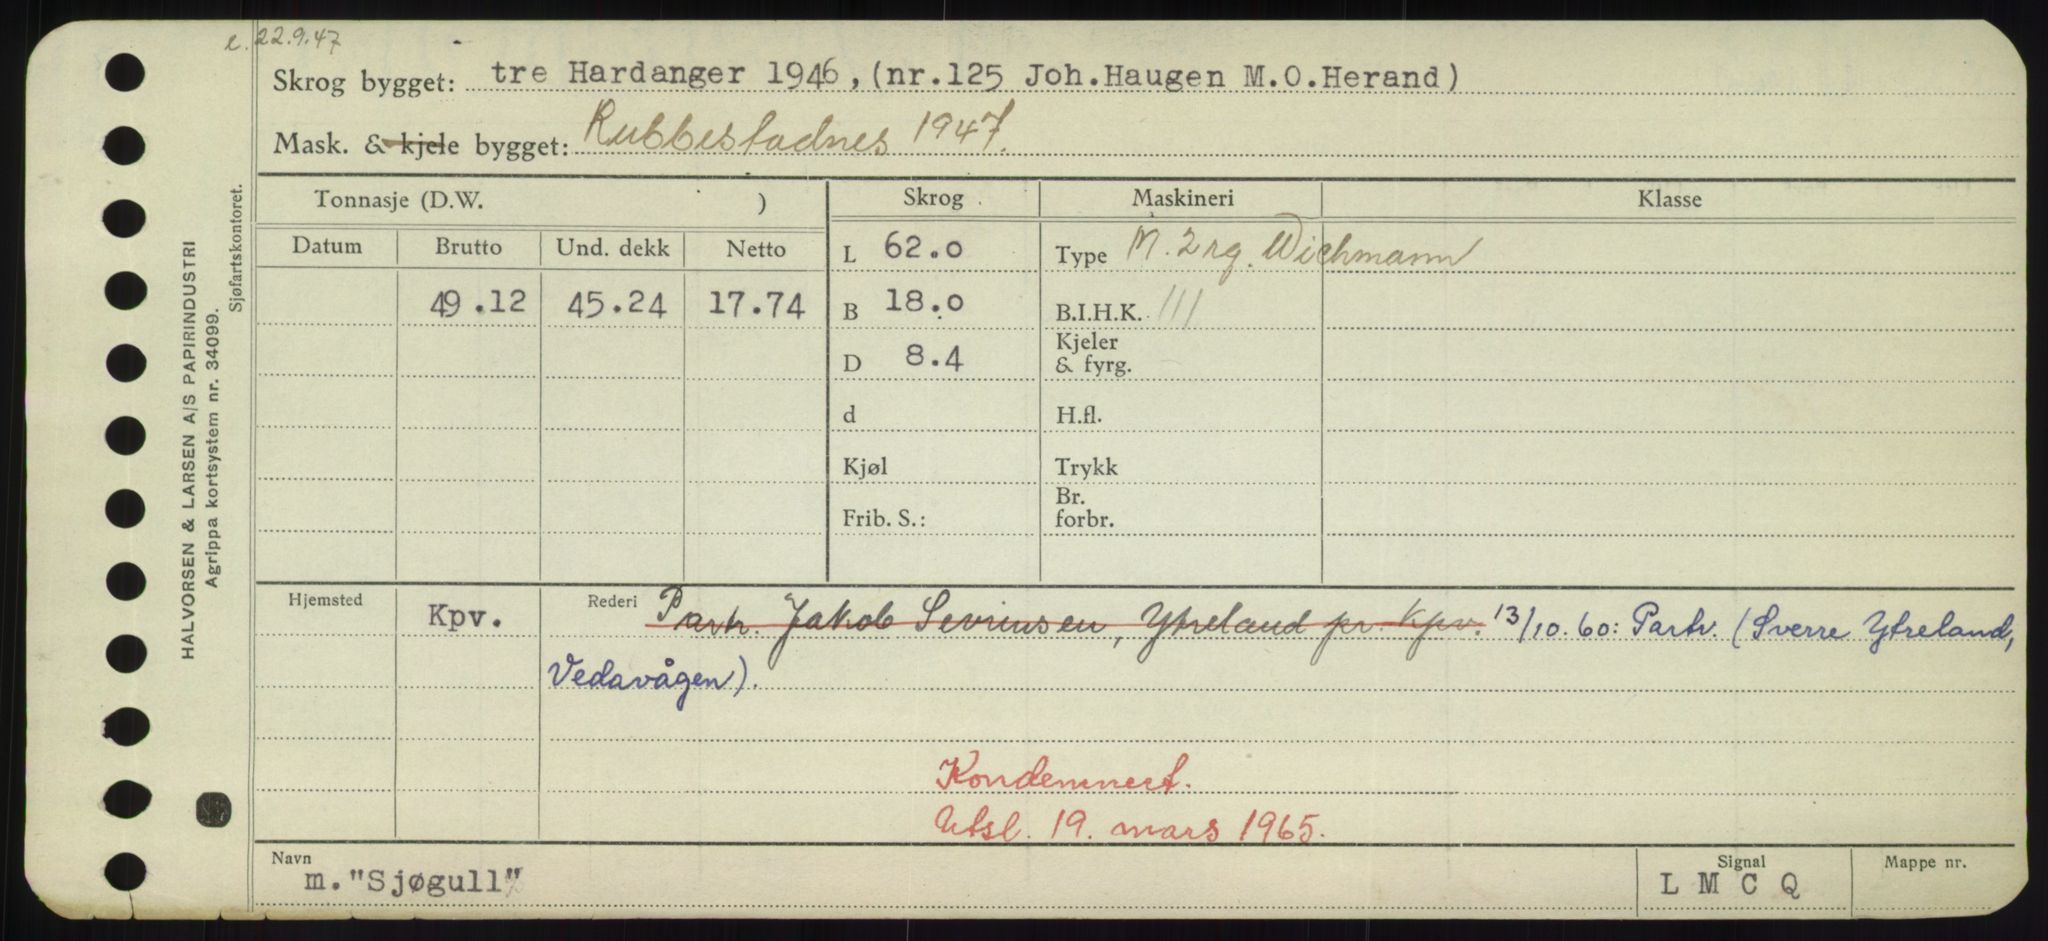 e. 22.9.47
Skrog bygget: tre Hardanger 1946, (nr.125 Joh.Haugen M.O.Herand)
Mask. & kjele bygget: Rubbestadnes 1947.
HALVORSEN & LARSEN A/S PAPIRINDUSTRI
Agrippa kortsystem nr. 34099.
Sjøfartskontoret.
Tonnasje (D.W. ) Skrog Maskineri Klasse
Datum Brutto Und. dekk Netto L 62.0 Type M. 2 rg. Wichmann
49.12 45.24 17.74 B 18.0 B.I.H.K. 111
D 8.4 Kjeler & fyrg.
d H.fl.
Kjøl Trykk
Frib. S.: Br. forbr.
Hjemsted Kpv. Rederi Partr. Jakob Sevrinsen, Ytreland pr. Kpv. 13/10.60: Partr. (Sverre Ytreland,
Vedavågen).
Kondemnert.
Utsl. 19. mars 1965.
Navn Signal Mappe nr.
m. "Sjøgull" L M C Q